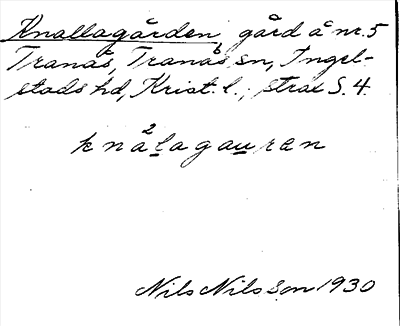 Knallagården, gård å nr. 5
Tranås, Tranås sn, Ingel-
stads hd, Krist. l.; strax S. 4.
knå²lagauran
Nils Nilsson 1930